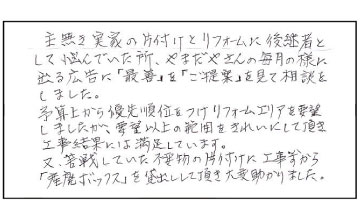 主無き実家の片付けとリフォームに後継者と
して悩んでいた所、やまだやさんの毎月の様に
出る広告に「最善」を「ご提案」を見て相談を
しました。
予算上から優先順位をつけリフォームエリアを要望
しましたが、要望以上の範囲をきれいにして頂き
工事結果には満足しています。
又、苦戦していた不要物の片付けに工事前から
「産廃ボックス」を貸出しして頂き大変助かりました。